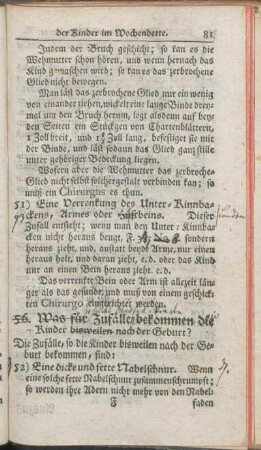 der Kinder im Wochenbette. 81
Indem der Bruch geschicht; so kan es die
Wehmutter schon hören, und wenn hernach das
Kind gewaschen wird; so kan es das zerbrochene
Glied nicht bewegen.
Man läst das zerbrochene Glied nur ein wenig
von einander ziehen, wickelt eine lange Binde drey-
mal um den Bruch herum, legt alsdenn auf bey-
den Seiten ein Stückgen von Chartenblättern,
1 Zoll breit, und Zoll lang, befestiget sie mit
der Binde, und läst sodann das Glied ganz stille
unter gehöriger Bedeckung liegen.
Wofern aber die Wehmutter das zerbroche-
ne Glied nicht selbst solchergestalt verbinden kan; so
muß ein Chirurgus es thun.
51) Eine Verrenkung des Unter-Kinnba-
ckens, Armes oder Dieser
Zufall entsteht; wenn man den Unter-Kinnba-
cken nicht heraus beugt, F. sondern
heraus zieht, und, anstatt beyde Arme, nur einen
heraus holt, und daran zieht, e. d. oder das Kind
nur an einen Bein heraus zieht, e. d.
Das verrenkte Bein oder Arm ist allezeit län-
ger als das gesunde, und muß von einem geschick-
ten Chirurgo eingerichtet werden.
56. Was für Zufälle bekommen die
Kinder bisweilen nach der Geburt?
Die Zufälle, so die Kinder bisweilen nach der Ge-
burt bekommen, sind:
52) Eine dicke und fette Nabelschnur. Wenn
eine solche fette Nabelschnur zusammenschrumpft;
so werden ihre Adern nicht mehr von den Nabel-
F faden